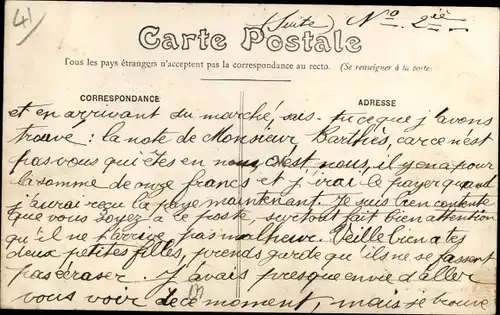 41
(Suite) No. 2ie
Carte Postale
Tous les pays étrangers n'acceptent pas la correspondance au recto. (Se renseigner à la poste)
CORRESPONDANCE
ADRESSE
et en arrivant du marché, sais-tu ce que j'avons
trouvé : la note de Monsieur Barthès, car ce n'ést
pas vous qui êtes en nous, c'ést nous, il y en a pour
la somme de onze francs et j'irai le payer quand
j'aurai reçu la paye maintenant. Je suis bien contente
que vous soyez à ce poste, surtout fait bien attention
qu'il ne t'arrive pas malheur. Veille bien a tes
deux petites filles, prends garde qu'ils ne se fassent
pas écraser. J'avais presque envie d'aller
vous voir de ce moment, mais se trouve